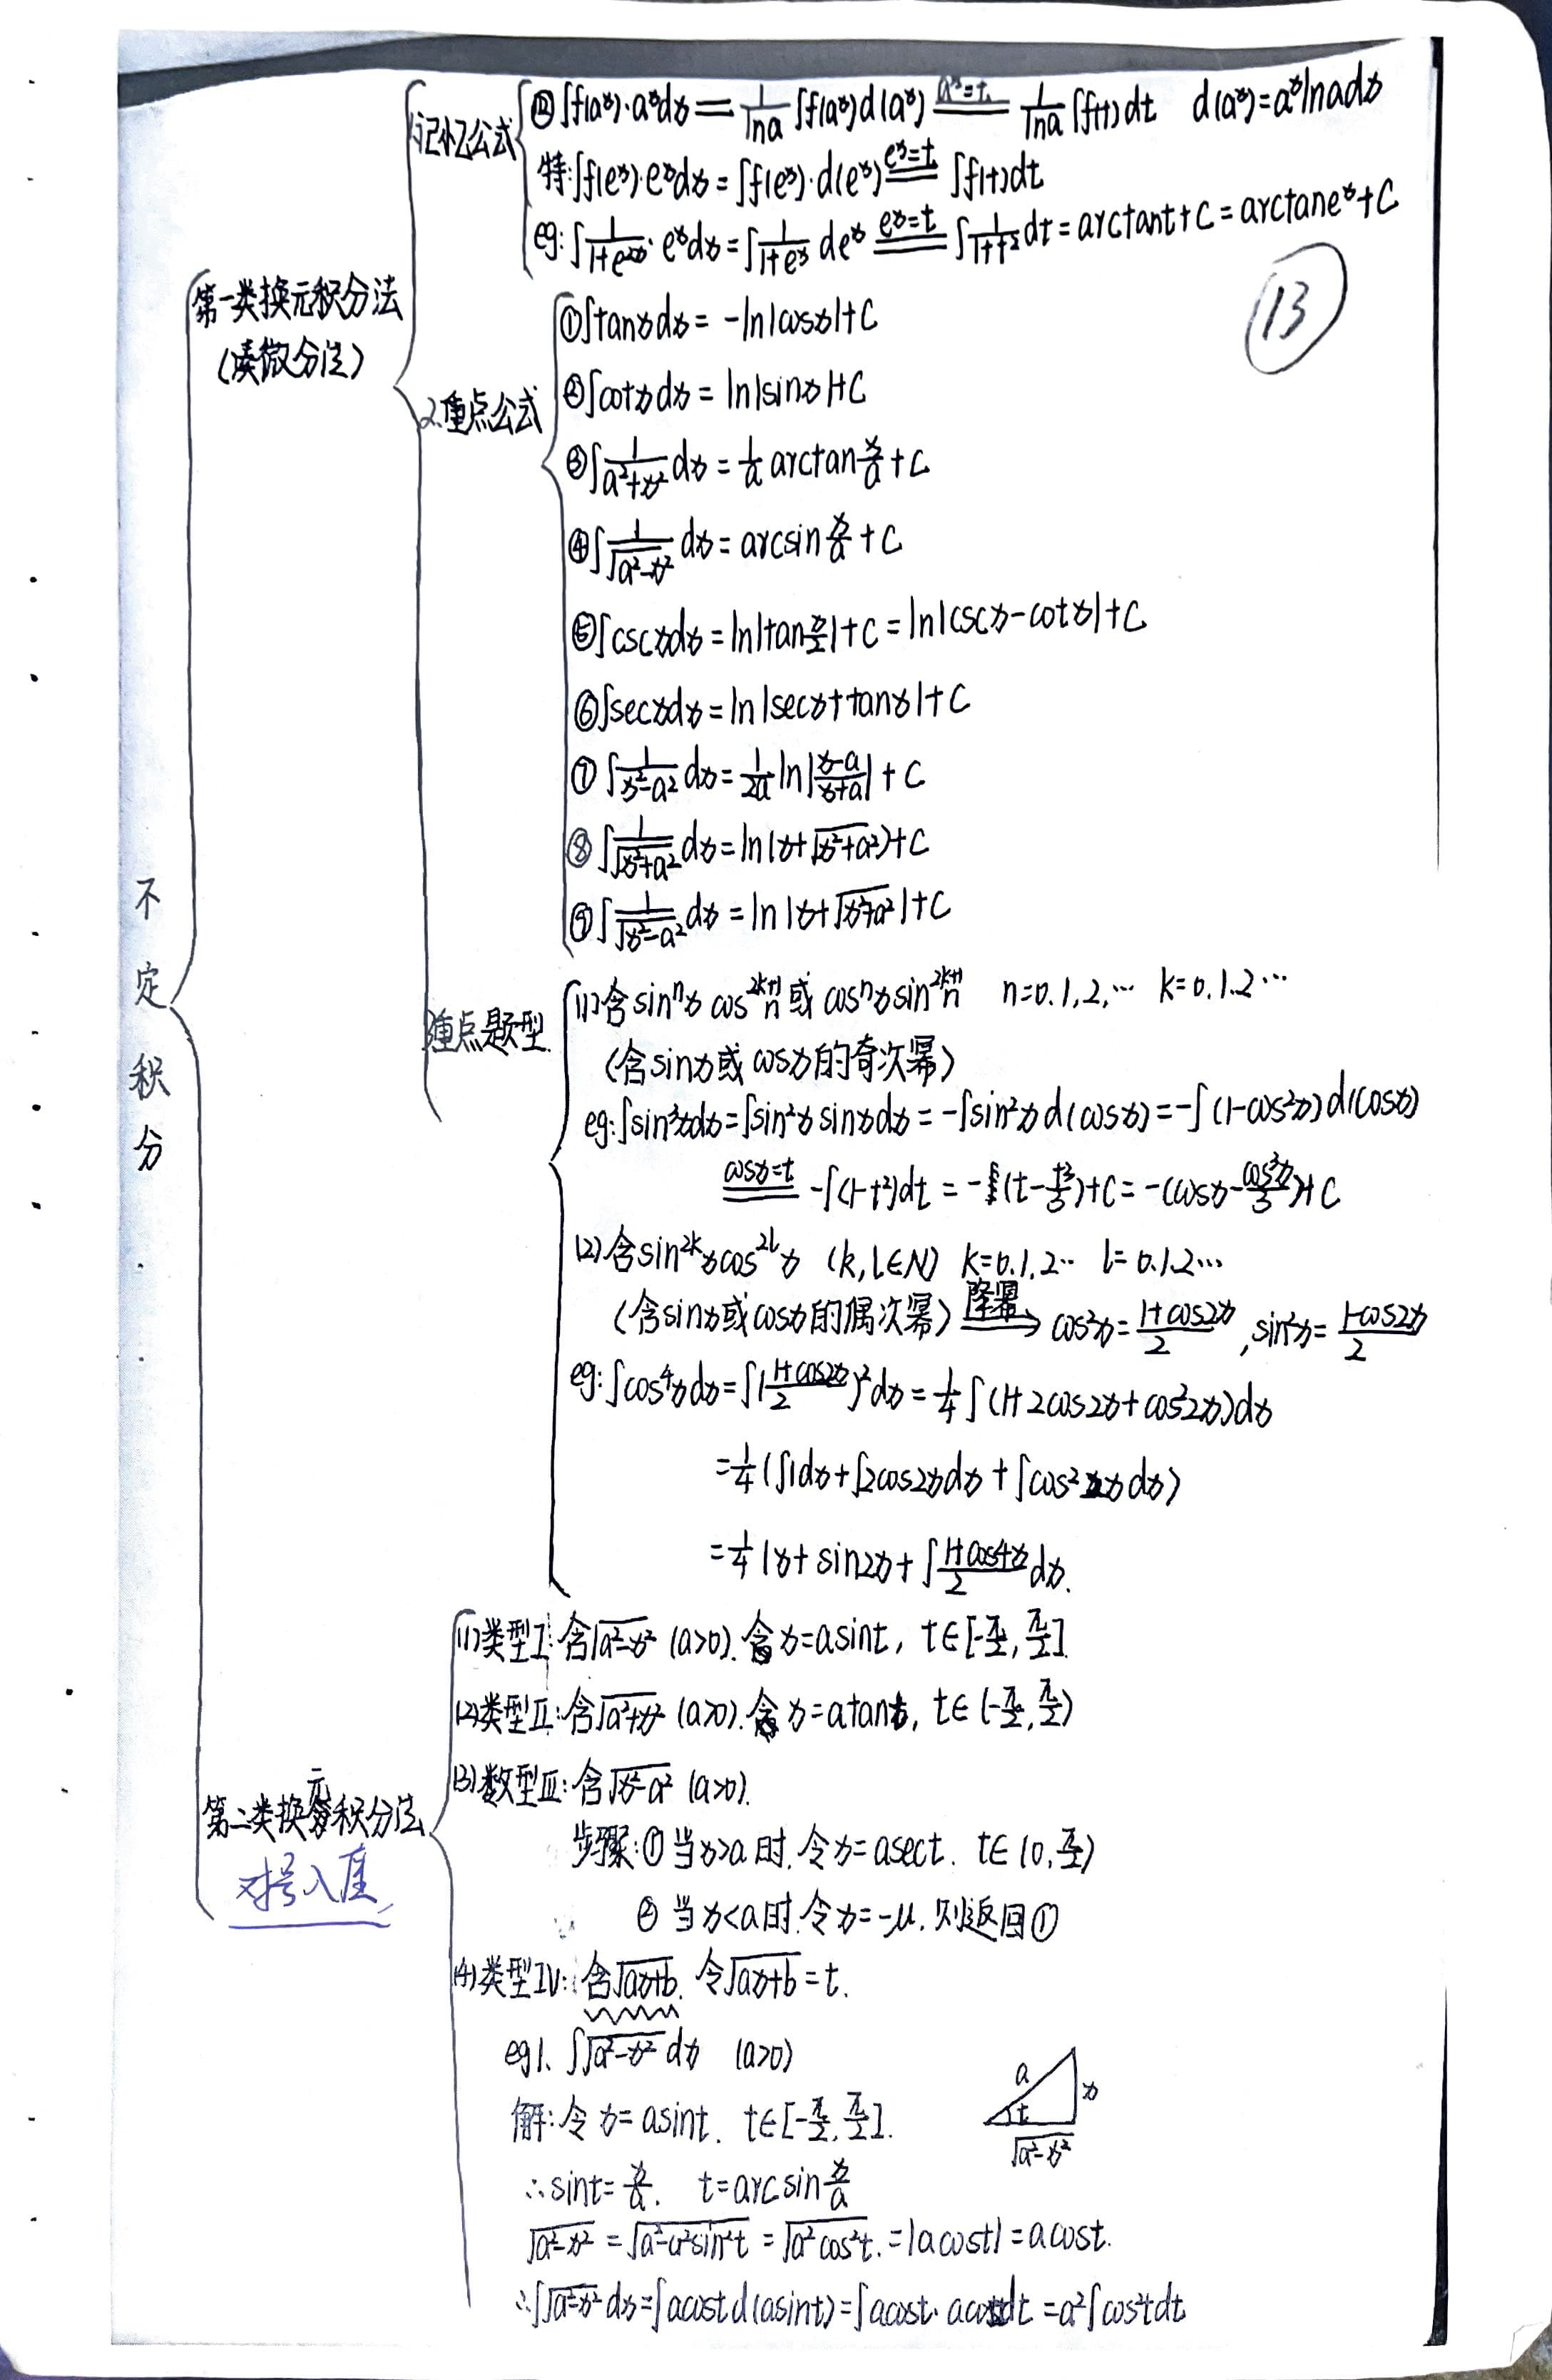 不定积分
第一类换元积分法
(凑微分法)
1.记忆公式
⑫∫f(aˣ)·aˣdx = 1/lna ∫f(aˣ)d(aˣ) =(aˣ=t) 1/lna ∫f(t)dt d(aˣ)=aˣlnadx
特:∫f(eˣ)·eˣdx=∫f(eˣ)·d(eˣ) =(eˣ=t) ∫f(t)dt
eg:∫1/(1+e²ˣ)·eˣdx=∫1/(1+eˣ) deˣ =(eˣ=t) ∫1/(1+t²)dt=arctant+C=arctaneˣ+C
⑬
2.重点公式
①∫tanxdx= -ln|cosx|+C
②∫cotxdx= ln|sinx|+C
③∫1/(a²+x²)dx=1/a arctan x/a+C
④∫1/√(a²-x²) dx=arcsin x/a+C
⑤∫cscxdx=ln|tan x/2|+C=ln|cscx-cotx|+C
⑥∫secxdx=ln|secx+tanx|+C
⑦∫1/(x²-a²)dx=1/2a ln|(x-a)/(x+a)|+C
⑧∫1/√(x²+a²)dx=ln(x+√(x²+a²))+C
⑨∫1/√(x²-a²)dx=ln|x+√(x²-a²)|+C
重点题型
(1)含sinⁿx cos²ᵏ⁺¹n或cosⁿxsin²ᵏ⁺¹n n=0.1,2,… k=0.1.2…
(含sinx或cosx的奇次幂)
eg:∫sin³xdx=∫sin²x sinxdx=-∫sin²xd(cosx)=-∫(1-cos²x)d(cosx)
=(cosx=t) -∫(1-t²)dt=-(t-t³/3)+C=-(cosx-cos³x/3)+C
(2)含sin²ᵏxcos²ˡx (k,l∈N) k=0.1,2‥ l=0.1.2…
(含sinx或cosx的偶次幂) 降幂⇒ cos²x=(1+cos2x)/2,sin²x=(1-cos2x)/2
eg:∫cos⁴xdx=∫((1+cos2x)/2)²dx=1/4∫(1+2cos2x+cos²2x)dx
=1/4(∫1dx+∫2cos2xdx+∫cos²2xdx)
=1/4(x+sin2x+∫(1+cos4x)/2 dx.
第二类换元积分法
对号入座
(1)类型Ⅰ:含√(a²-x²) (a>0).令x=asint, t∈[-π/2,π/2].
(2)类型Ⅱ:含√(a²+x²) (a>0).令x=atant, t∈(-π/2,π/2)
(3)数型Ⅲ:含√(x²-a²) (a>0).
步骤:①当x>a时.令x=asect. t∈(0,π/2)
②当x<a时.令x=-μ.则返回①
(4)类型IV:含√(ax+b).令√(ax+b)=t.
eg1.∫√(a²-x²)dx (a>0)
解:令x=asint. t∈[-π/2,π/2].
a
t
x
√(a²-x²)
∴sint=x/a. t=arcsin x/a
√(a²-x²)=√(a²-a²sin²t)=√(a²cos²t).=|acost|=acost.
∴∫√(a²-x²)dx=∫acostd(asint)=∫acost·acostdt=a²∫cos²tdt